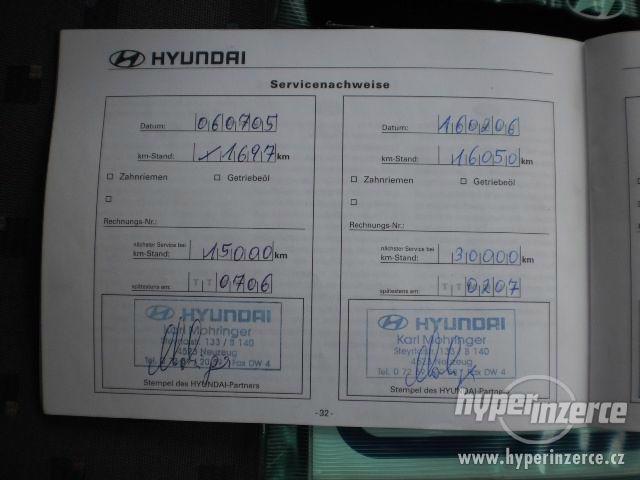 HYUNDAI
Servicenachweise
Datum: 060705
km-Stand: 1697 km
Zahnriemen Getriebeöl
Rechnungs-Nr.:
nächster Service bei
km-Stand: 15000 km
spätestens am: T T 0706
HYUNDAI
Karl Mohringer
Steyrtalstr. 133 / B 140
4523 Neuzeug
Tel. 0 72 Fax DW 4
Stempel des HYUNDAI-Partners
Datum: 160206
km-Stand: 16050 km
Zahnriemen Getriebeöl
Rechnungs-Nr.:
nächster Service bei
km-Stand: 30000 km
spätestens am: T T 0207
HYUNDAI
Karl Mohringer
Steyrtalstr. 133 / B 140
4523 Neuzeug
Tel. 0 72 Fax DW 4
Stempel des HYUNDAI-Partners
- 32 -
hyperinzerce
www.hyperinzerce.cz